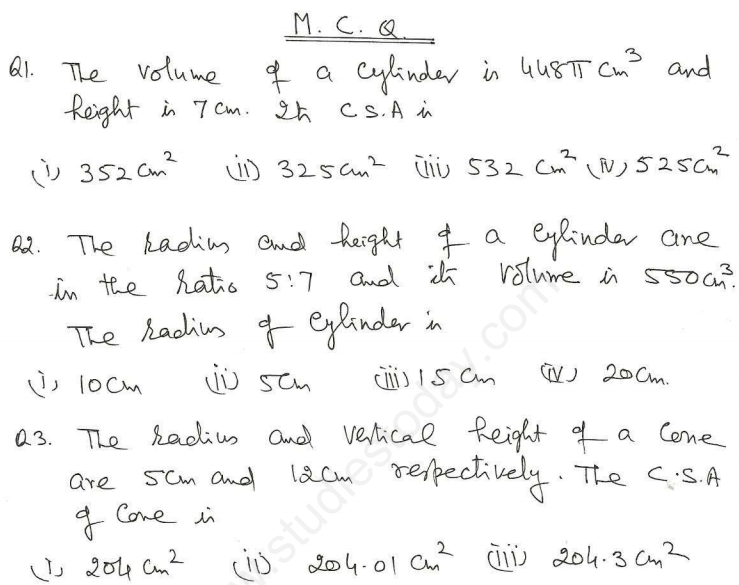 M. C. Q.
Q1. The volume of a cylinder is 448π cm³ and
height is 7 cm. Its C.S.A is
(i) 352 cm² (ii) 325 cm² (iii) 532 cm² (iv) 525 cm²
Q2. The radius and height of a cylinder are
in the ratio 5:7 and its volume is 550 cm³.
The radius of cylinder is
(i) 10 cm (ii) 5 cm (iii) 15 cm (iv) 20 cm.
Q3. The radius and vertical height of a Cone
are 5 cm and 12 cm respectively. The C.S.A
of Cone is
(i) 204 cm² (ii) 204.01 cm² (iii) 204.3 cm²
www.studiestoday.com